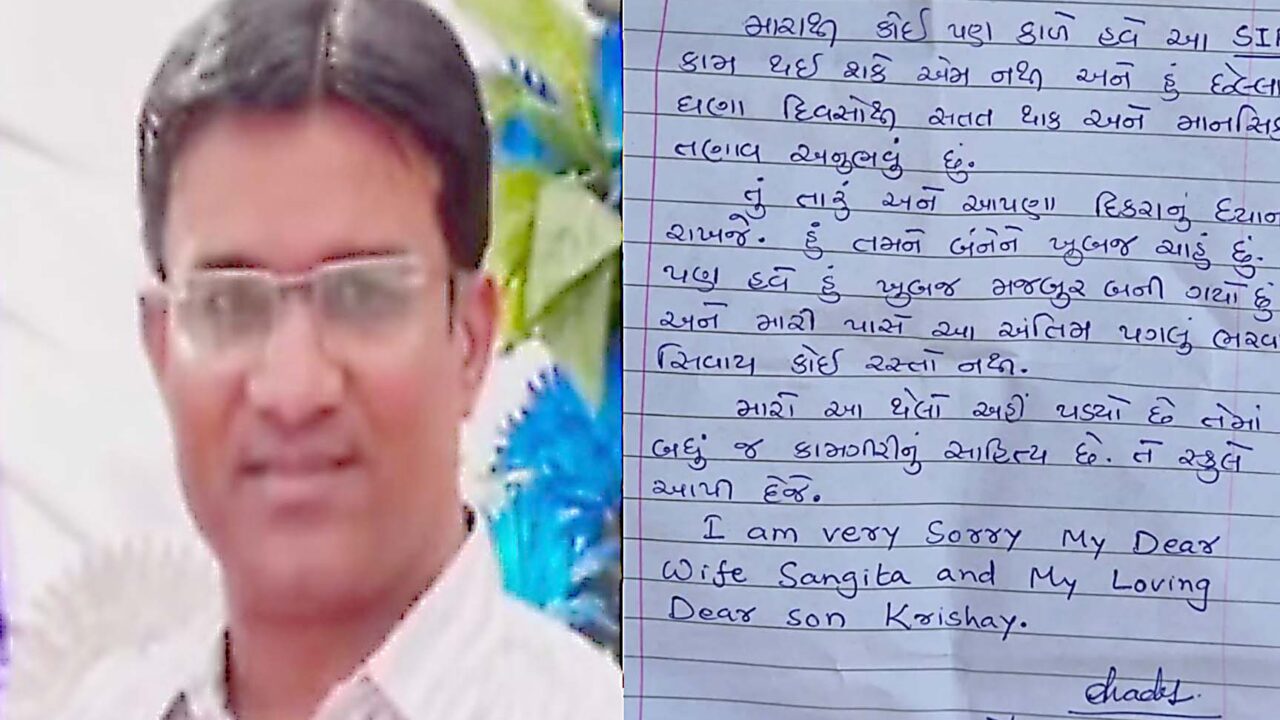 મારાથી કોઈ પણ કાળે હવે આ SIR
કામ થઈ શકે એમ નથી અને હું છેલ્લા
ઘણા દિવસોથી સતત થાક અને માનસિક
તણાવ અનુભવું છું.
તું તારું અને આપણા દિકરાનું ધ્યાન
રાખજે. હું તમને બંનેને ખુબજ ચાહું છું.
પણ હવે હું ખુબજ મજબુર બની ગયો છું
અને મારી પાસે આ અંતિમ પગલું ભરવા
સિવાય કોઈ રસ્તો નથી.
મારો આ થેલો અહીં પડ્યો છે તેમાં
બધું જ કામગીરીનું સાહિત્ય છે. તે સ્કુલે
આપી દેજે.
I am very Sorry My Dear
Wife Sangita and My Loving
Dear son Krishay.